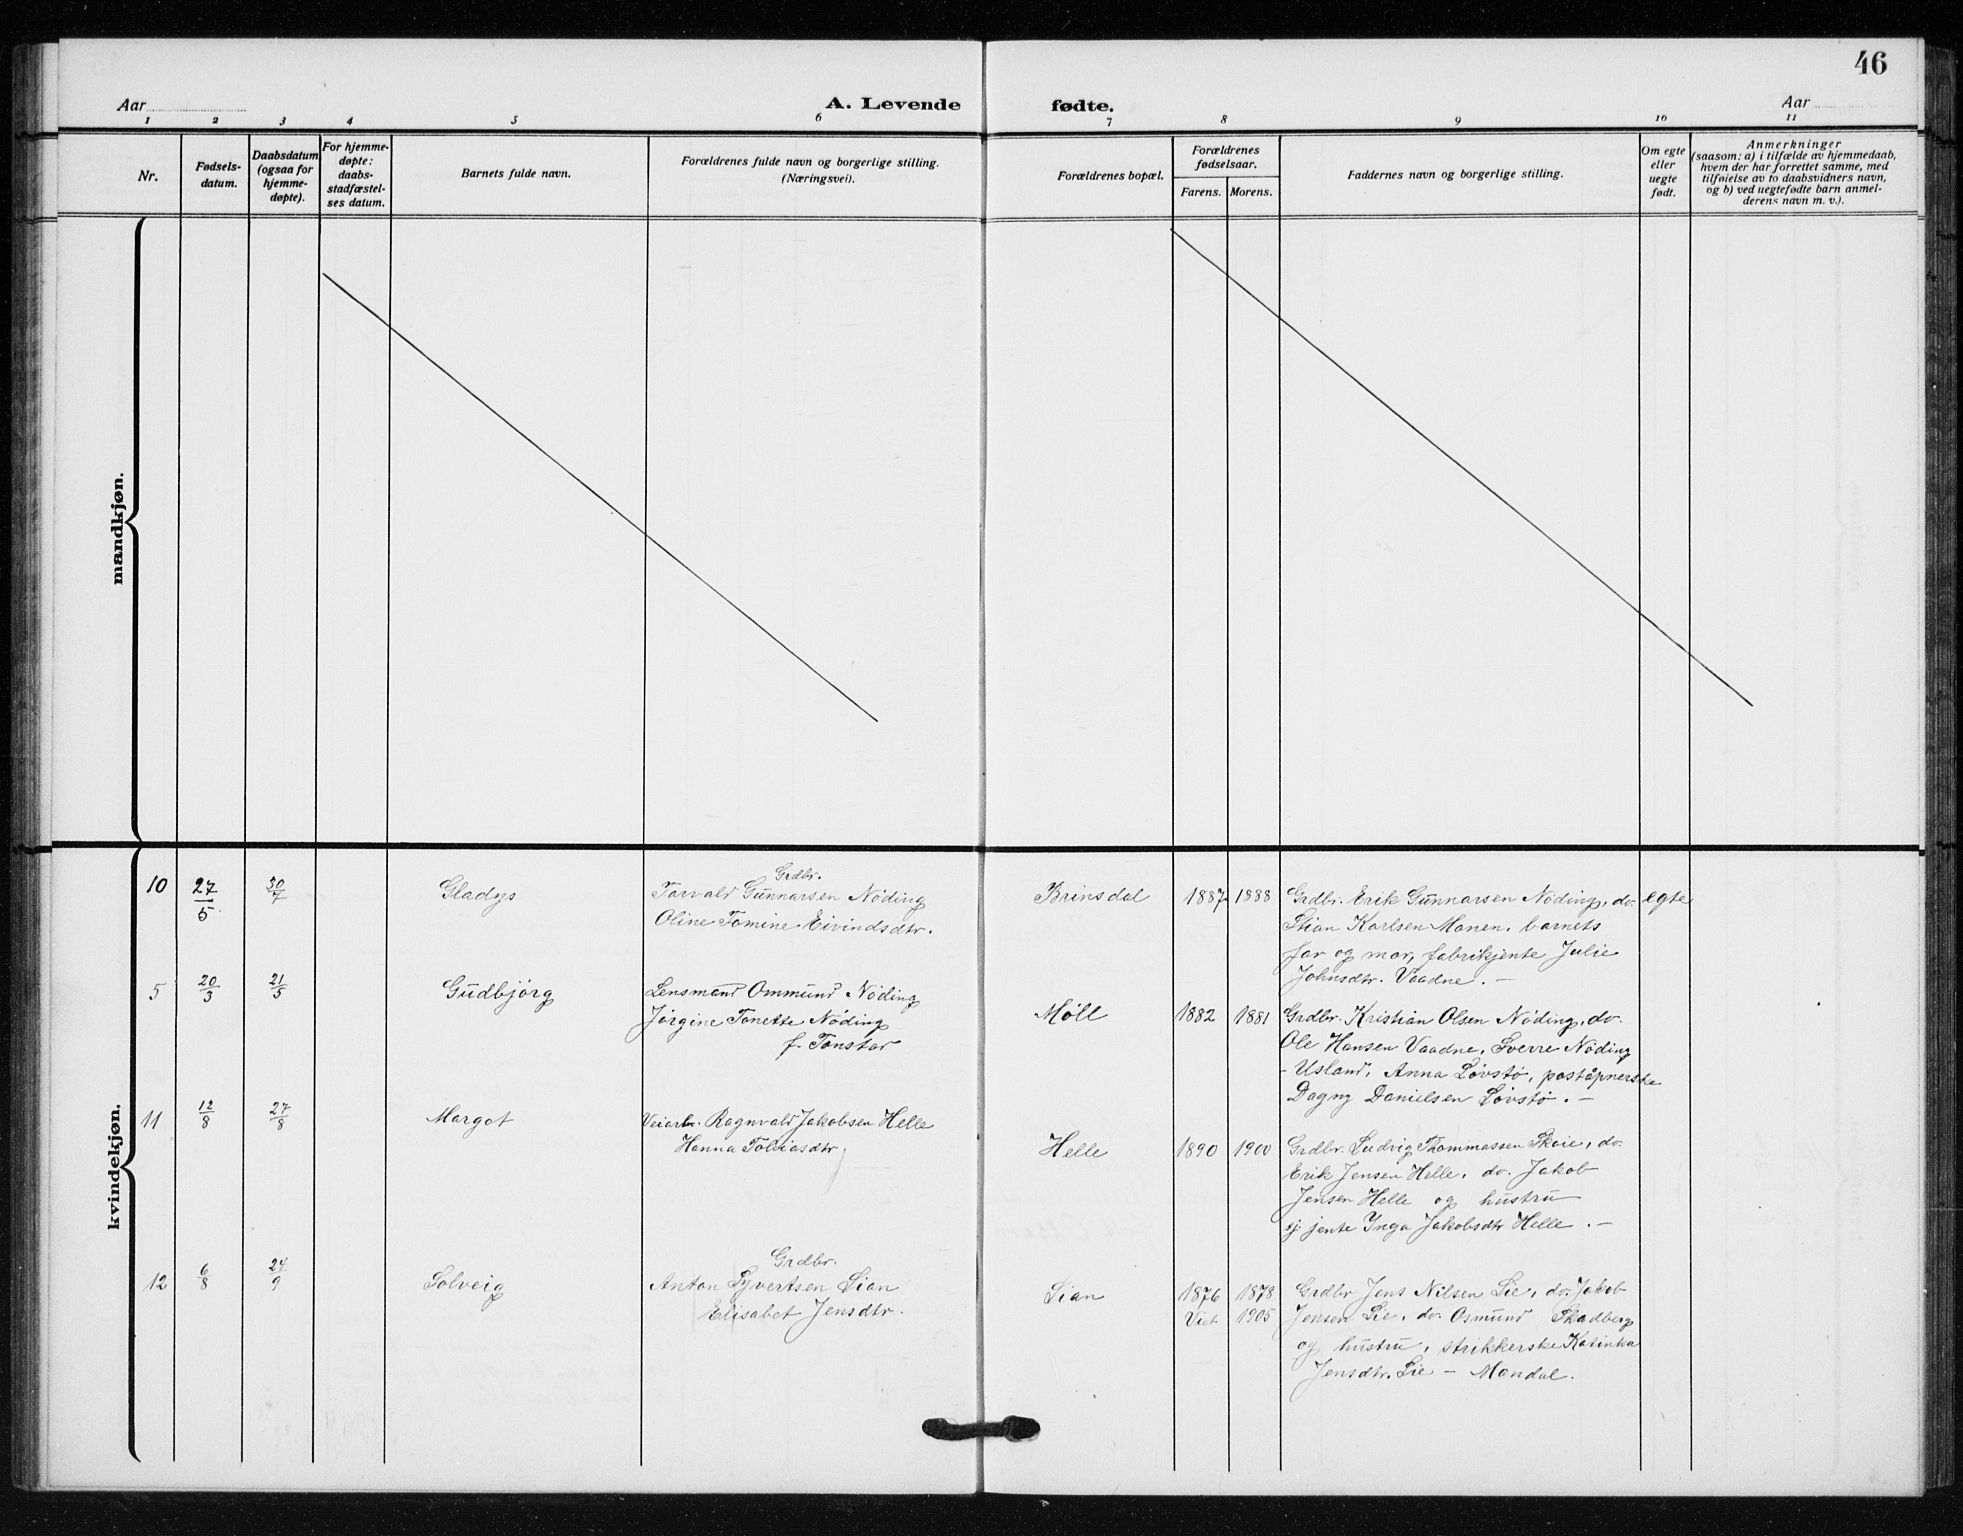 46
Aar
A. Levende fødte.
Aar
1 2 3 4 5 6 7 8 9 10 11
Nr.
Fødsels-
datum.
Daabsdatum
(ogsaa for
hjemme-
døpte).
For hjemme-
døpte:
daabs-
stadfæstel-
ses datum.
Barnets fulde navn.
Forældrenes fulde navn og borgerlige stilling.
(Næringsvei).
Forældrenes bopæl.
Forældrenes
fødselsaar.
Farens. Morens.
Faddernes navn og borgerlige stilling.
Om egte
eller
uegte
født.
Anmerkninger
(saasom: a) i tilfælde av hjemmedaab,
hvem der har forrettet samme, med
tilføielse av to daabsvidners navn,
og b) ved uegtefødte barn anmel-
derens navn m. v.).
mandkjøn.
kvindekjøn.
10 27/5 30/7 Gladys
Grdbr.
Torvald Gunnarsen Nöding
Oline Tomine Eivindsdtr.
Brinsdal 1887 1888
Grdbr. Erik Gunnarsen Nöding, do.
Stian Karlsen Monen, barnets
far og mor, fabrikjente Julie
Johnsdtr. Vaadne. –
egte
5 20/3 21/5 Gudbjörg
Lensmand Ommund Nöding
Jörgine Tonette Nöding
f. Tonstar
Möll 1882 1881
Grdbr. Kristian Olsen Nöding, do.
Ole Hansen Vaadne, Sverre Nöding
- Usland, Anna Lövstö, poståpnerske
Dagny Danielsen Lövstö. –
11 12/8 27/8 Margot
Veiarb. Ragnvald Jakobsen Helle
Hanna Tobiasdtr
Helle 1890 1900
Grdbr. Ludvig Thommassen Skoie, do.
Erik Jensen Helle, do. Jakob
Jensen Helle og hustru
jente Inga Jakobsdtr Helle. –
12 6/8 24/9 Solveig
Grdbr.
Anton Syvertsen Lian
Elisabet Jensdtr.
Lian 1876 1878
Viet 1905
Grdbr Jens Nilsen Lie, do. Jakob
Jensen Lie, do. Osmund Skadberg
og hustru, strikkerske Katinka
Jensdtr. Lie – Mandal.